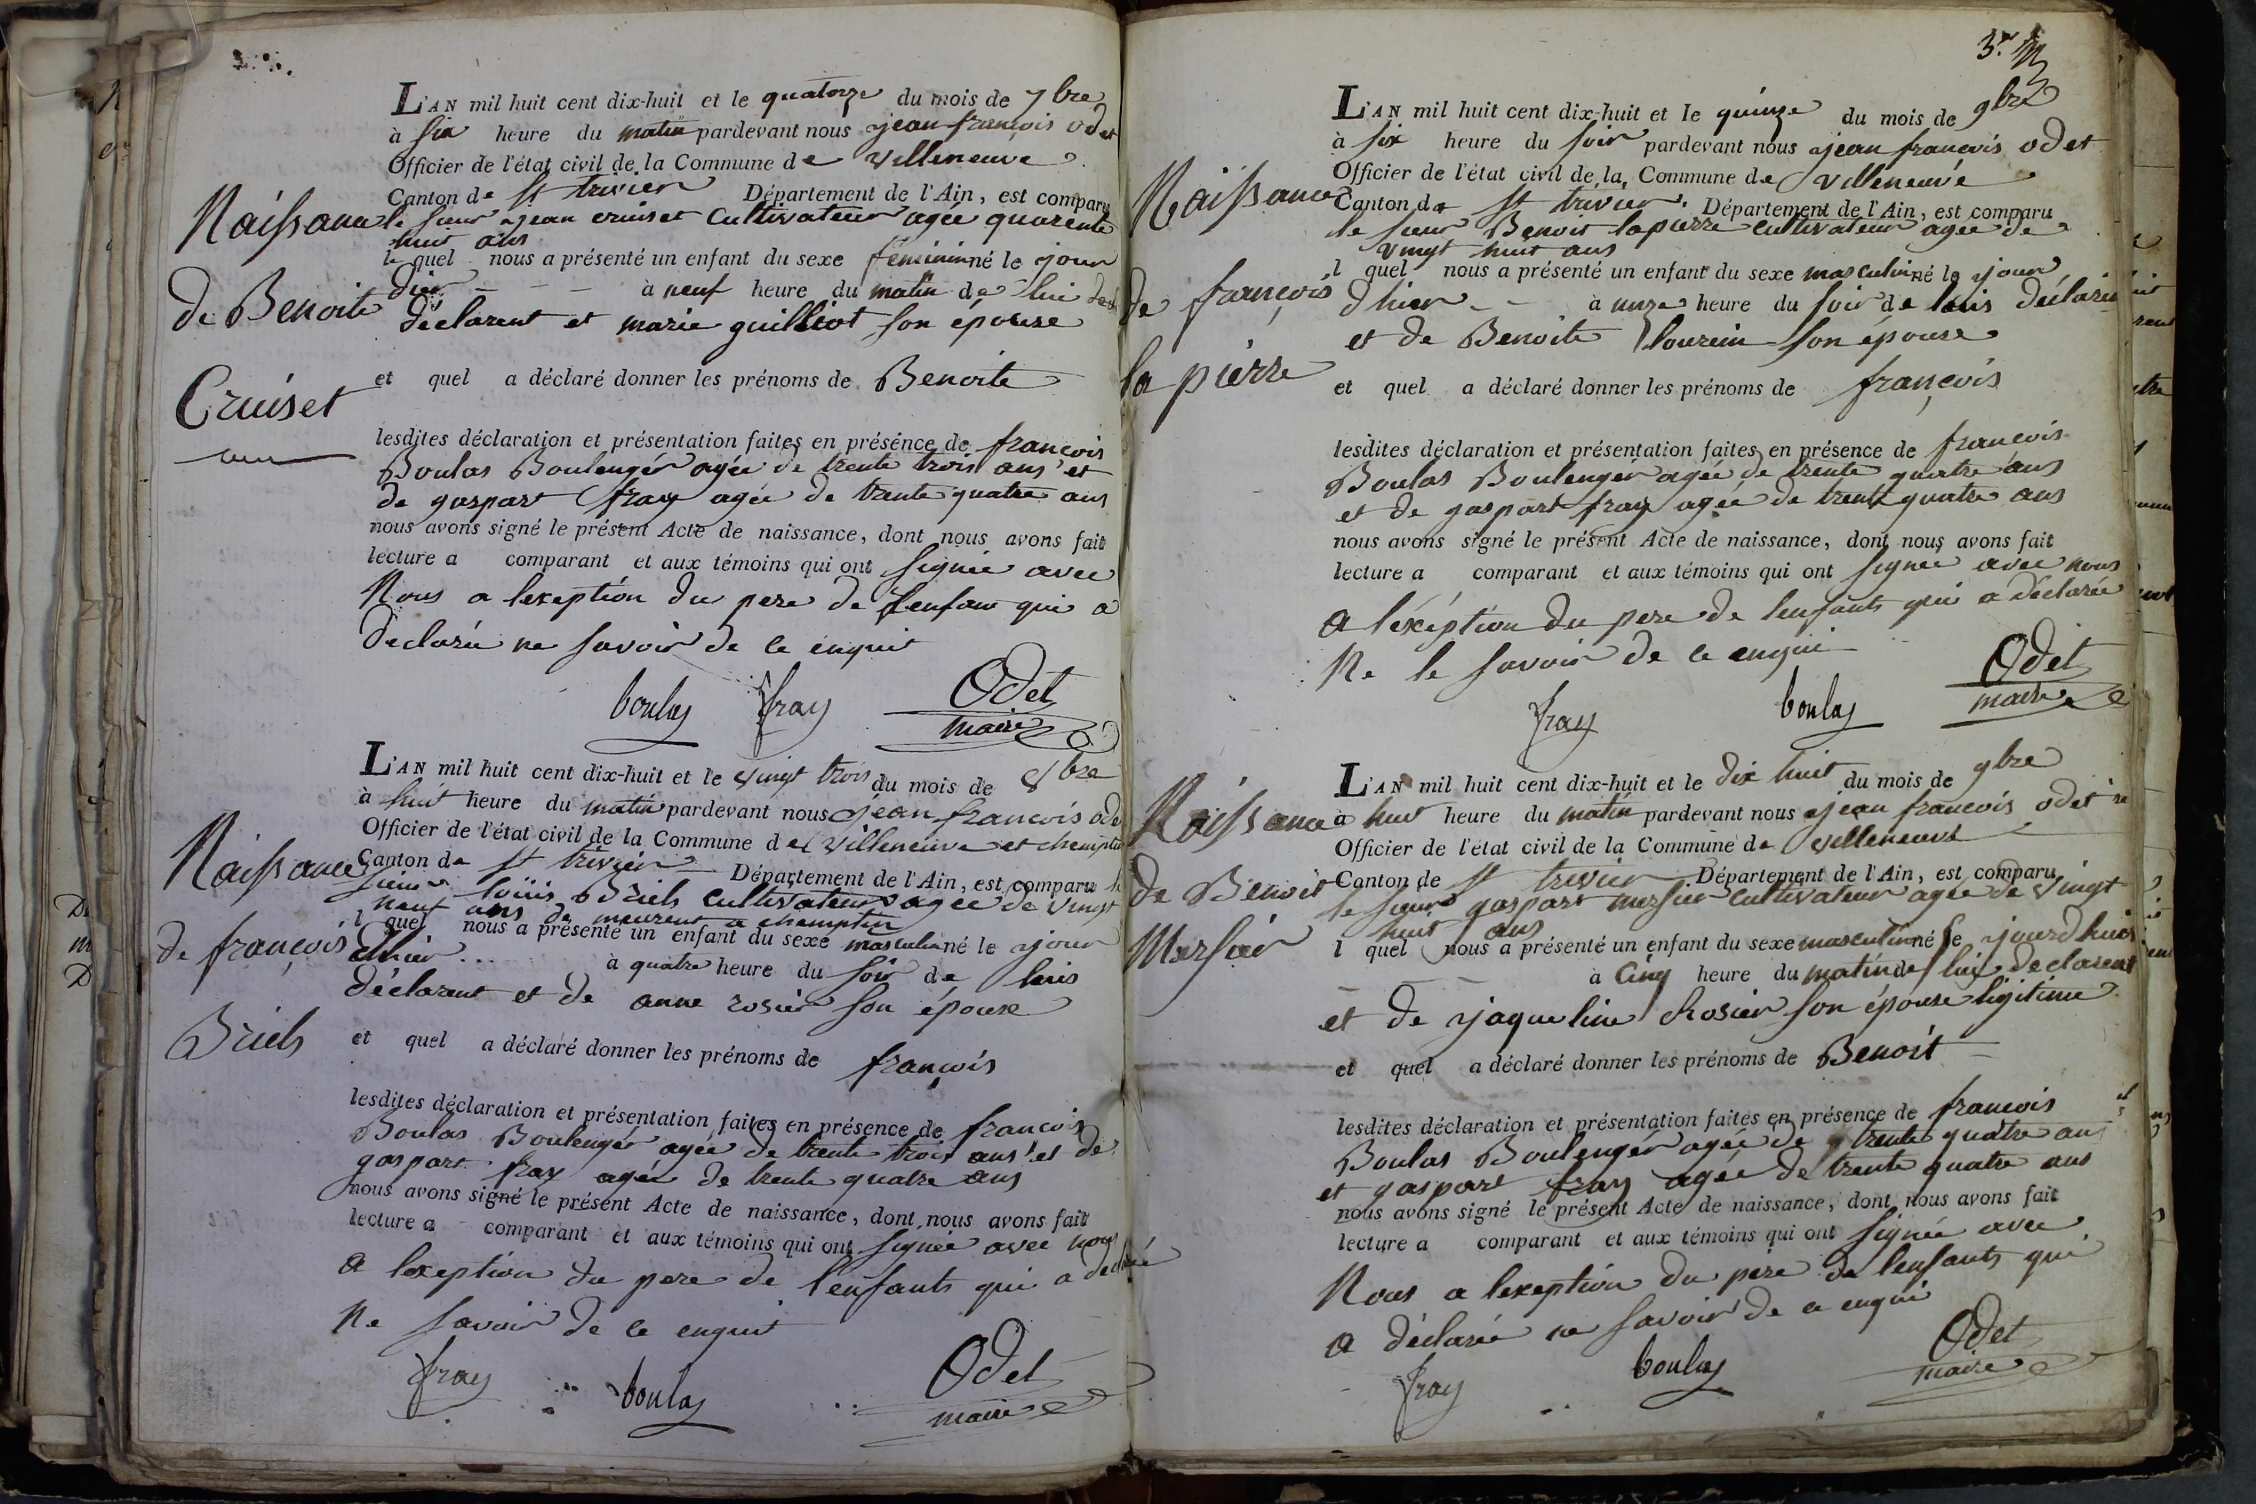 L'AN mil huit cent dix-huit et le quatorze du mois de 7bre
à six heure du matin pardevant nous jean francois odet
Officier de l'état civil de la Commune de villeneuve
Canton de St trivier Département de l'Ain, est comparu
le sieur jean cruiset cultivateur agée quarente
huit ans
le quel nous a présenté un enfant du sexe feminin né le jour
dier à neuf heure du matin de lui
déclarent et marie guilliot son épouse
et quel a déclaré donner les prénoms de Benoite
lesdites déclaration et présentation faites en présence de francois
Boulas Boulengér agée de trente trois ans et
de gaspart fray agée de trente quatre ans
nous avons signé le présent Acte de naissance, dont nous avons fait
lecture a comparant et aux témoins qui ont signée avec
Nous a lexeption du pere de lenfant qui a
declarée ne savoir de ce enquit
boulas fray Odet
maire
Naissance
de Benoite
Cruiset
L'AN mil huit cent dix-huit et le vingt trois du mois de 8bre
à huit heure du matin pardevant nous jean francois
Officier de l'état civil de la Commune de villeneuve et
Canton de St trivier Département de l'Ain, est comparu le
sieur loüis Briels cultivateur agée de vingt
neuf ans de meurent a chemptin
l quel nous a présenté un enfant du sexe masculin né le jour
dhier à quatre heure du soir de luis
déclarent et de anne rosier son épouse
et quel a déclaré donner les prénoms de françois
lesdites déclaration et présentation faites en présence de francois
Boulas Boulengér agée de trente trois ans et de
gaspart fray agée de trente quatre ans
nous avons signé le présent Acte de naissance, dont nous avons fait
lecture a comparant et aux témoins qui ont signée avec nous
a lexeption du pere de l'enfants qui a declaré
Ne savoir de ce enquit
fray boulas Odet
maire
Naissance
de françois
Briels
3.e
L'AN mil huit cent dix-huit et le quinze du mois de 9bre
à six heure du soir pardevant nous jean francois odet
Officier de l'état civil de la Commune de villeneuve
Canton de St trivier Département de l'Ain, est comparu
le sieur Benoit lapierre cultivateur agée de
vingt huit ans
l quel nous a présenté un enfant du sexe masculin né le jour
dhier à unze heure du soir de luis
et de Benoite son épouse
et quel a déclaré donner les prénoms de françois
lesdites déclaration et présentation faites en présence de francois
Boulas Boulengér agée de trente quatre ans
et de gaspart fray agée de trente quatre ans
nous avons signé le présent Acte de naissance, dont nous avons fait
lecture a comparant et aux témoins qui ont signée avec nous
a l'éxéption du pere de lenfants qui a déclarée
Ne le savoir de ce enqui
fray boulas Odet
maire
Naissance
de françois
la pierre
L'AN mil huit cent dix-huit et le dix huit du mois de 9bre
à huit heure du matin pardevant nous jean francois odet
Officier de l'état civil de la Commune de villeneuve
Canton de St trivier Département de l'Ain, est comparu
le sieur gaspart mersier cultivateur agée de vingt
huit ans
l quel nous a présenté un enfant du sexe masculin né le jourdhuis
à Cinq heure du matin de lui declarent
et de jaqueline Rosier son épouse ligitime
et quel a déclaré donner les prénoms de Benoit
lesdites déclaration et présentation faites en présence de francois
Boulas Boulengér agée de trente quatre ans
et gaspart fray agée de trente quatre ans
nous avons signé le présent Acte de naissance, dont nous avons fait
lecture a comparant et aux témoins qui ont signée avec
Nous a lexeption du pere de lenfants qui
a déclarée ne savoir de ce enqui
fray boulas Odet
maire
Naissance
de Benoit
Mersier